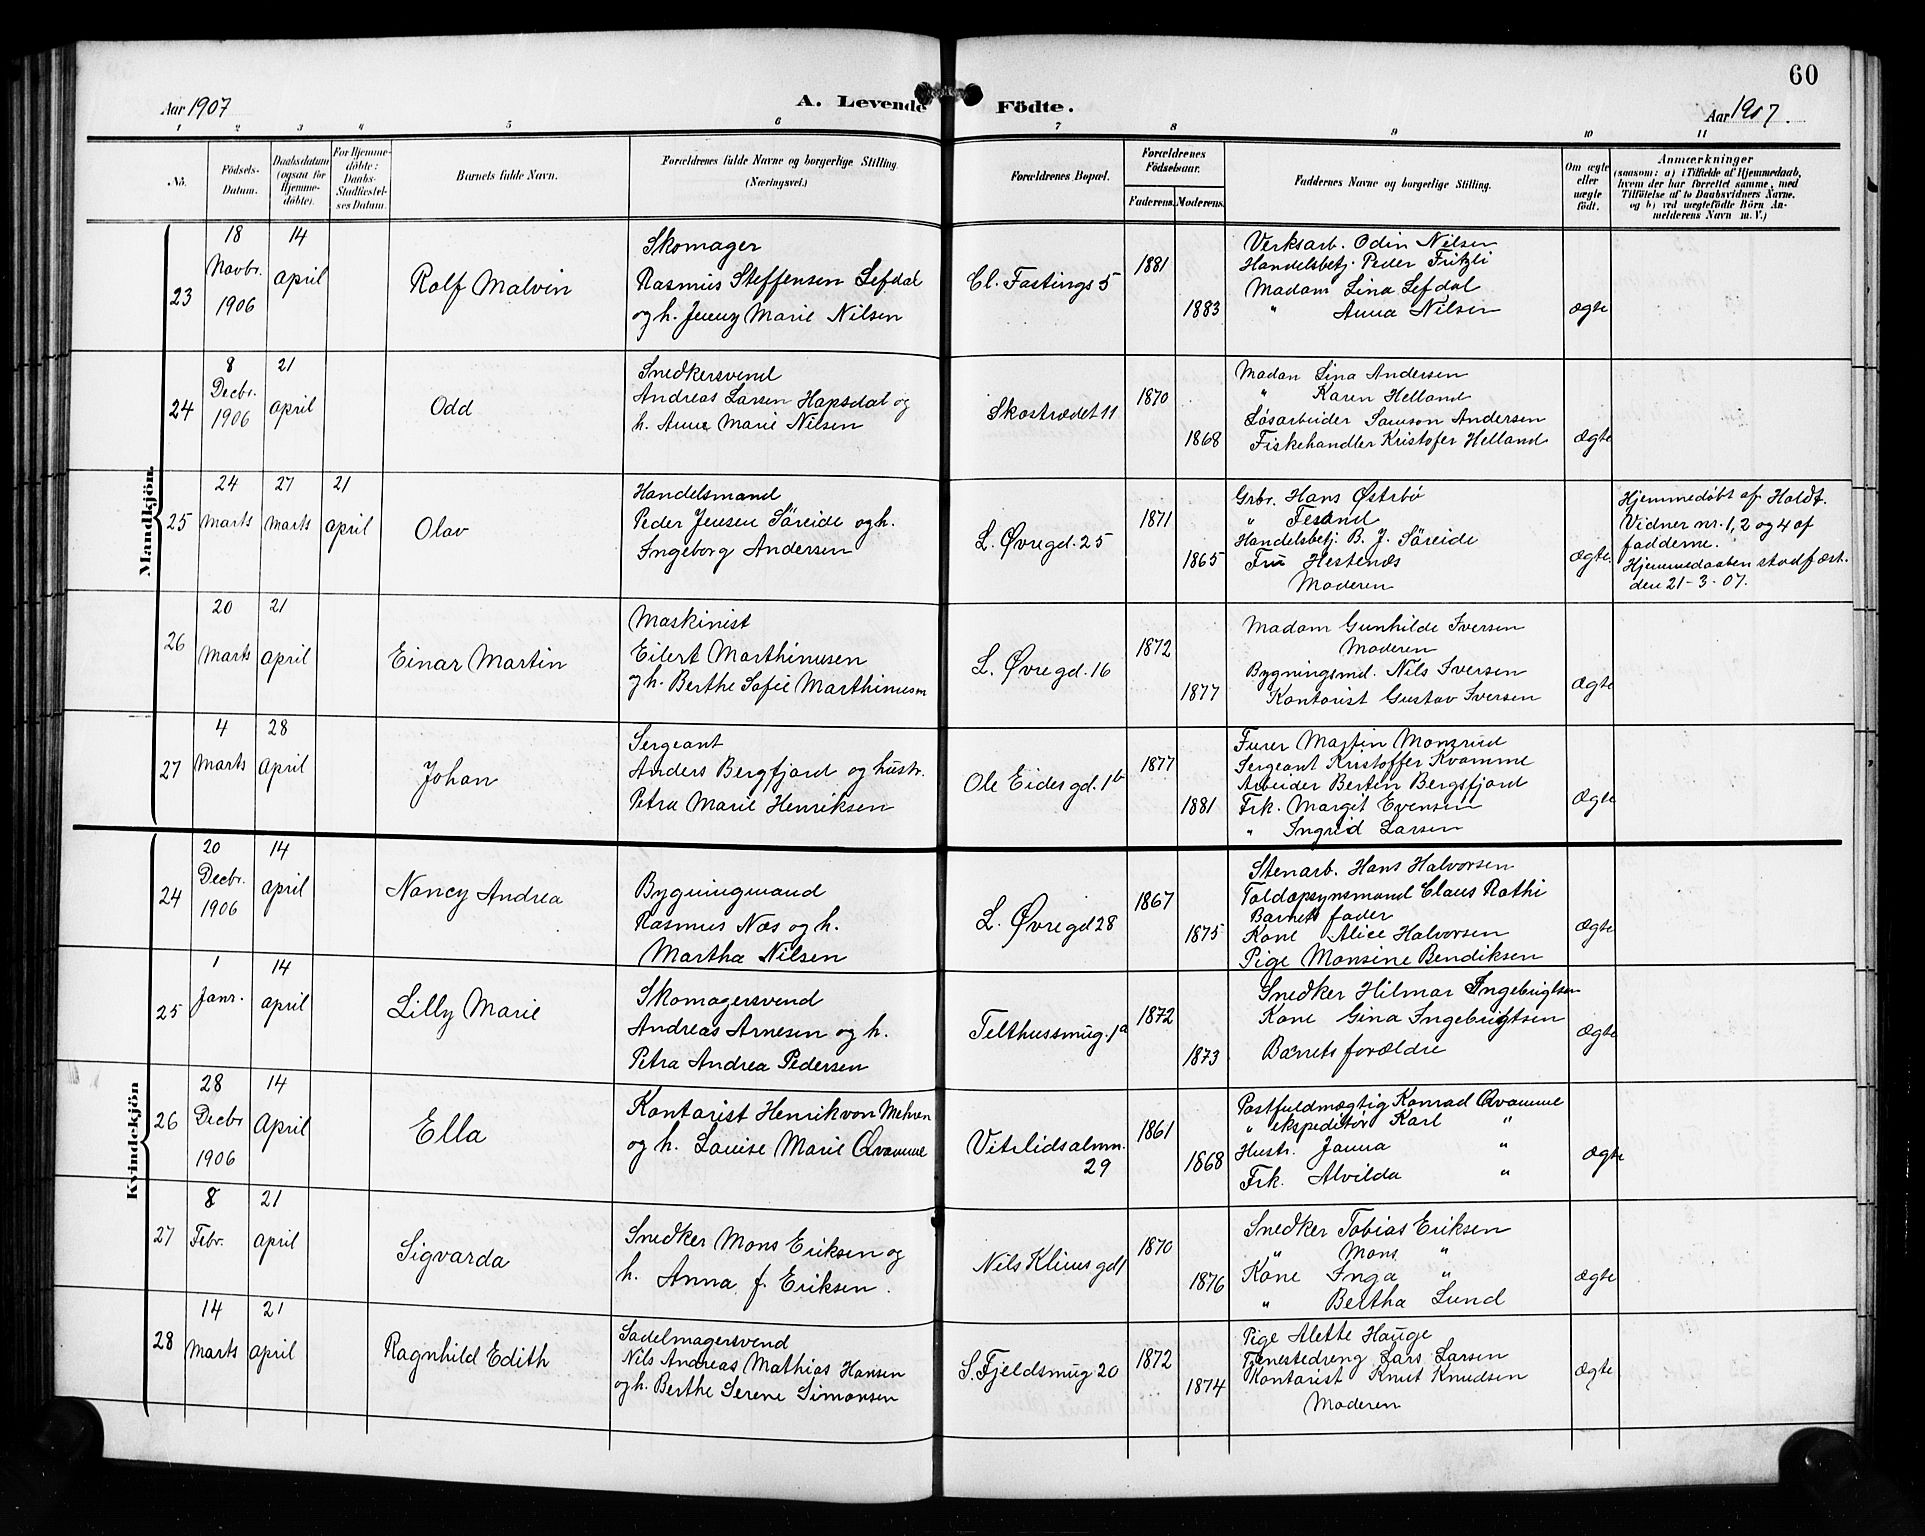 60
Aar 1907
A. Levende Födte.
Aar 1907.
1 2 3 4 5 6 7 8 9 10 11
No.
Födsels-Datum.
Daabsdatum (ogsaa för Hjemme-döbte).
For Hjemme-döbte: Daabs-Stadfæstel-ses Datum.
Barnets fulde Navn.
Forældrenes fulde Navne og borgerlige Stilling.
(Næringsvei.)
Forældrenes Bopæl.
Forældrenes Födselsaar.
Faderens. Moderens.
Faddernes Navne og borgerlige Stilling.
Om ægte eller uægte födt.
Anmærkninger
(saasom: a) i Tilfælde af Hjemmedaab,
hvem der har forrettet samme, med
Tilföielse af to Daabsvidners Navne.
og b) ved uægtefödte Börn An-
melderens Navn m. V.)
Mandkjön.
23
18 Novbr. 1906
14 April
Rolf Malvin
Skomager
Rasmus Steffensen Sefdal
og h. Jenny Marie Nilsen
Cl. Fastings 5
1881
1883
Verksarb. Odin Nilsen
Handelsbetj. Peder Fritzli
Madam Lina Sefdal
" Anna Nilsen
Ægte
24
8 Decbr. 1906
21 April
Odd
Snedkersvend
Andreas Larsen Hopsdal og
h. Anne Marie Nilsen
Skostrædet 11
1870
1868
Madam Lina Andersen
" Karen Helland
Løsarbeider Samson Andersen
Fiskehandler Kristofer Helland
Ægte
25
24 Marts
27 Marts
21 April
Olav
Handelsmand
Peder Jensen Söreide og h.
Ingeborg Andersen
L. Øvregd. 25
1871
1865
Grbr. Hans Østrbø
" Tesand
Handelsbetj. B. J. Söreide
Fru Hestenæs
Moderen
Ægte.
Hjemmedøbt af Holdt.
Vidner nr. 1, 2 og 4 af
fadderne.
Hjemmedaaben stadfæst.
den 21-3-07.
26
20 Marts
21 April
Einar Martin
Maskinist
Eilert Marthinusen
og h. Berthe Sofie Marthinusen
L. Øvregd. 16
1872
1877
Madam Gunhilde Iversen
Moderen
Bygningsmd. Nils Iversen
Kontorist Gustav Iversen
Ægte
27
4 Marts
28 April
Johan
Sergeant
Anders Bergfjord og hustr.
Petra Marie Henriksen
Ole Eides gd. 1b
1877
1881
Furer Martin Monsrud
Sergeant Kristoffer Kvamme
Arbeider Bertin Bergsfjord
Frk. Margit Evensen
" Ingrid Larsen
Ægte
Kvindekjön
24
20 Decbr. 1906
14 April
Nancy Andrea
Bygningmand
Rasmus Næs og h.
Martha Nilsen
L. Øvregd 28
1867
1875
Stenarb. Hans Halvorsen
Toldopsynsmand Claus Rathi
Barnets fader
Kone Alice Halvorsen
Pige Monsine Bendiksen
Ægte
25
1 Janr.
14 April
Lilly Marie
Skomagersvend
Andreas Arnesen og h.
Petra Andrea Pedersen
Telthussmug. 1a
1872
1873
Snedker Hilmar Ingebrigtsen
Kone Gina Ingebrigtsen
Barnets forældre
Ægte
26
28 Decbr 1906
14 April
Ella
Kontorist Henrik von Mehren
og h. Louise Marie Qvamme
Vitrlidsalmm. 29
1861
1868
Postfuldmægtig Konrad Qvamme
" ekspeditør Karl "
Hustr. Janna "
Frk. Alvilda "
Ægte
27
8 Febr.
21 April
Sigvarda
Snedker Mons Eriksen og
h. Anna, f. Eriksen.
Nils Klims gd 1
1870
1876
Snedker Tobias Eriksen
" Mons "
Kone Inga "
" Bertha Lund
Ægte
28
14 Marts
21 April
Ragnhild Edith
Sadelmagersvend
Nils Andreas Mathias Hansen
og h. Berthe Serene Simonsen
S. Fjeldsmug 20
1872
1874
Pige Alette Hauge
Tjenestedreng Lars Larsen
Kontorist Knut Knudsen
Moderen
Ægte